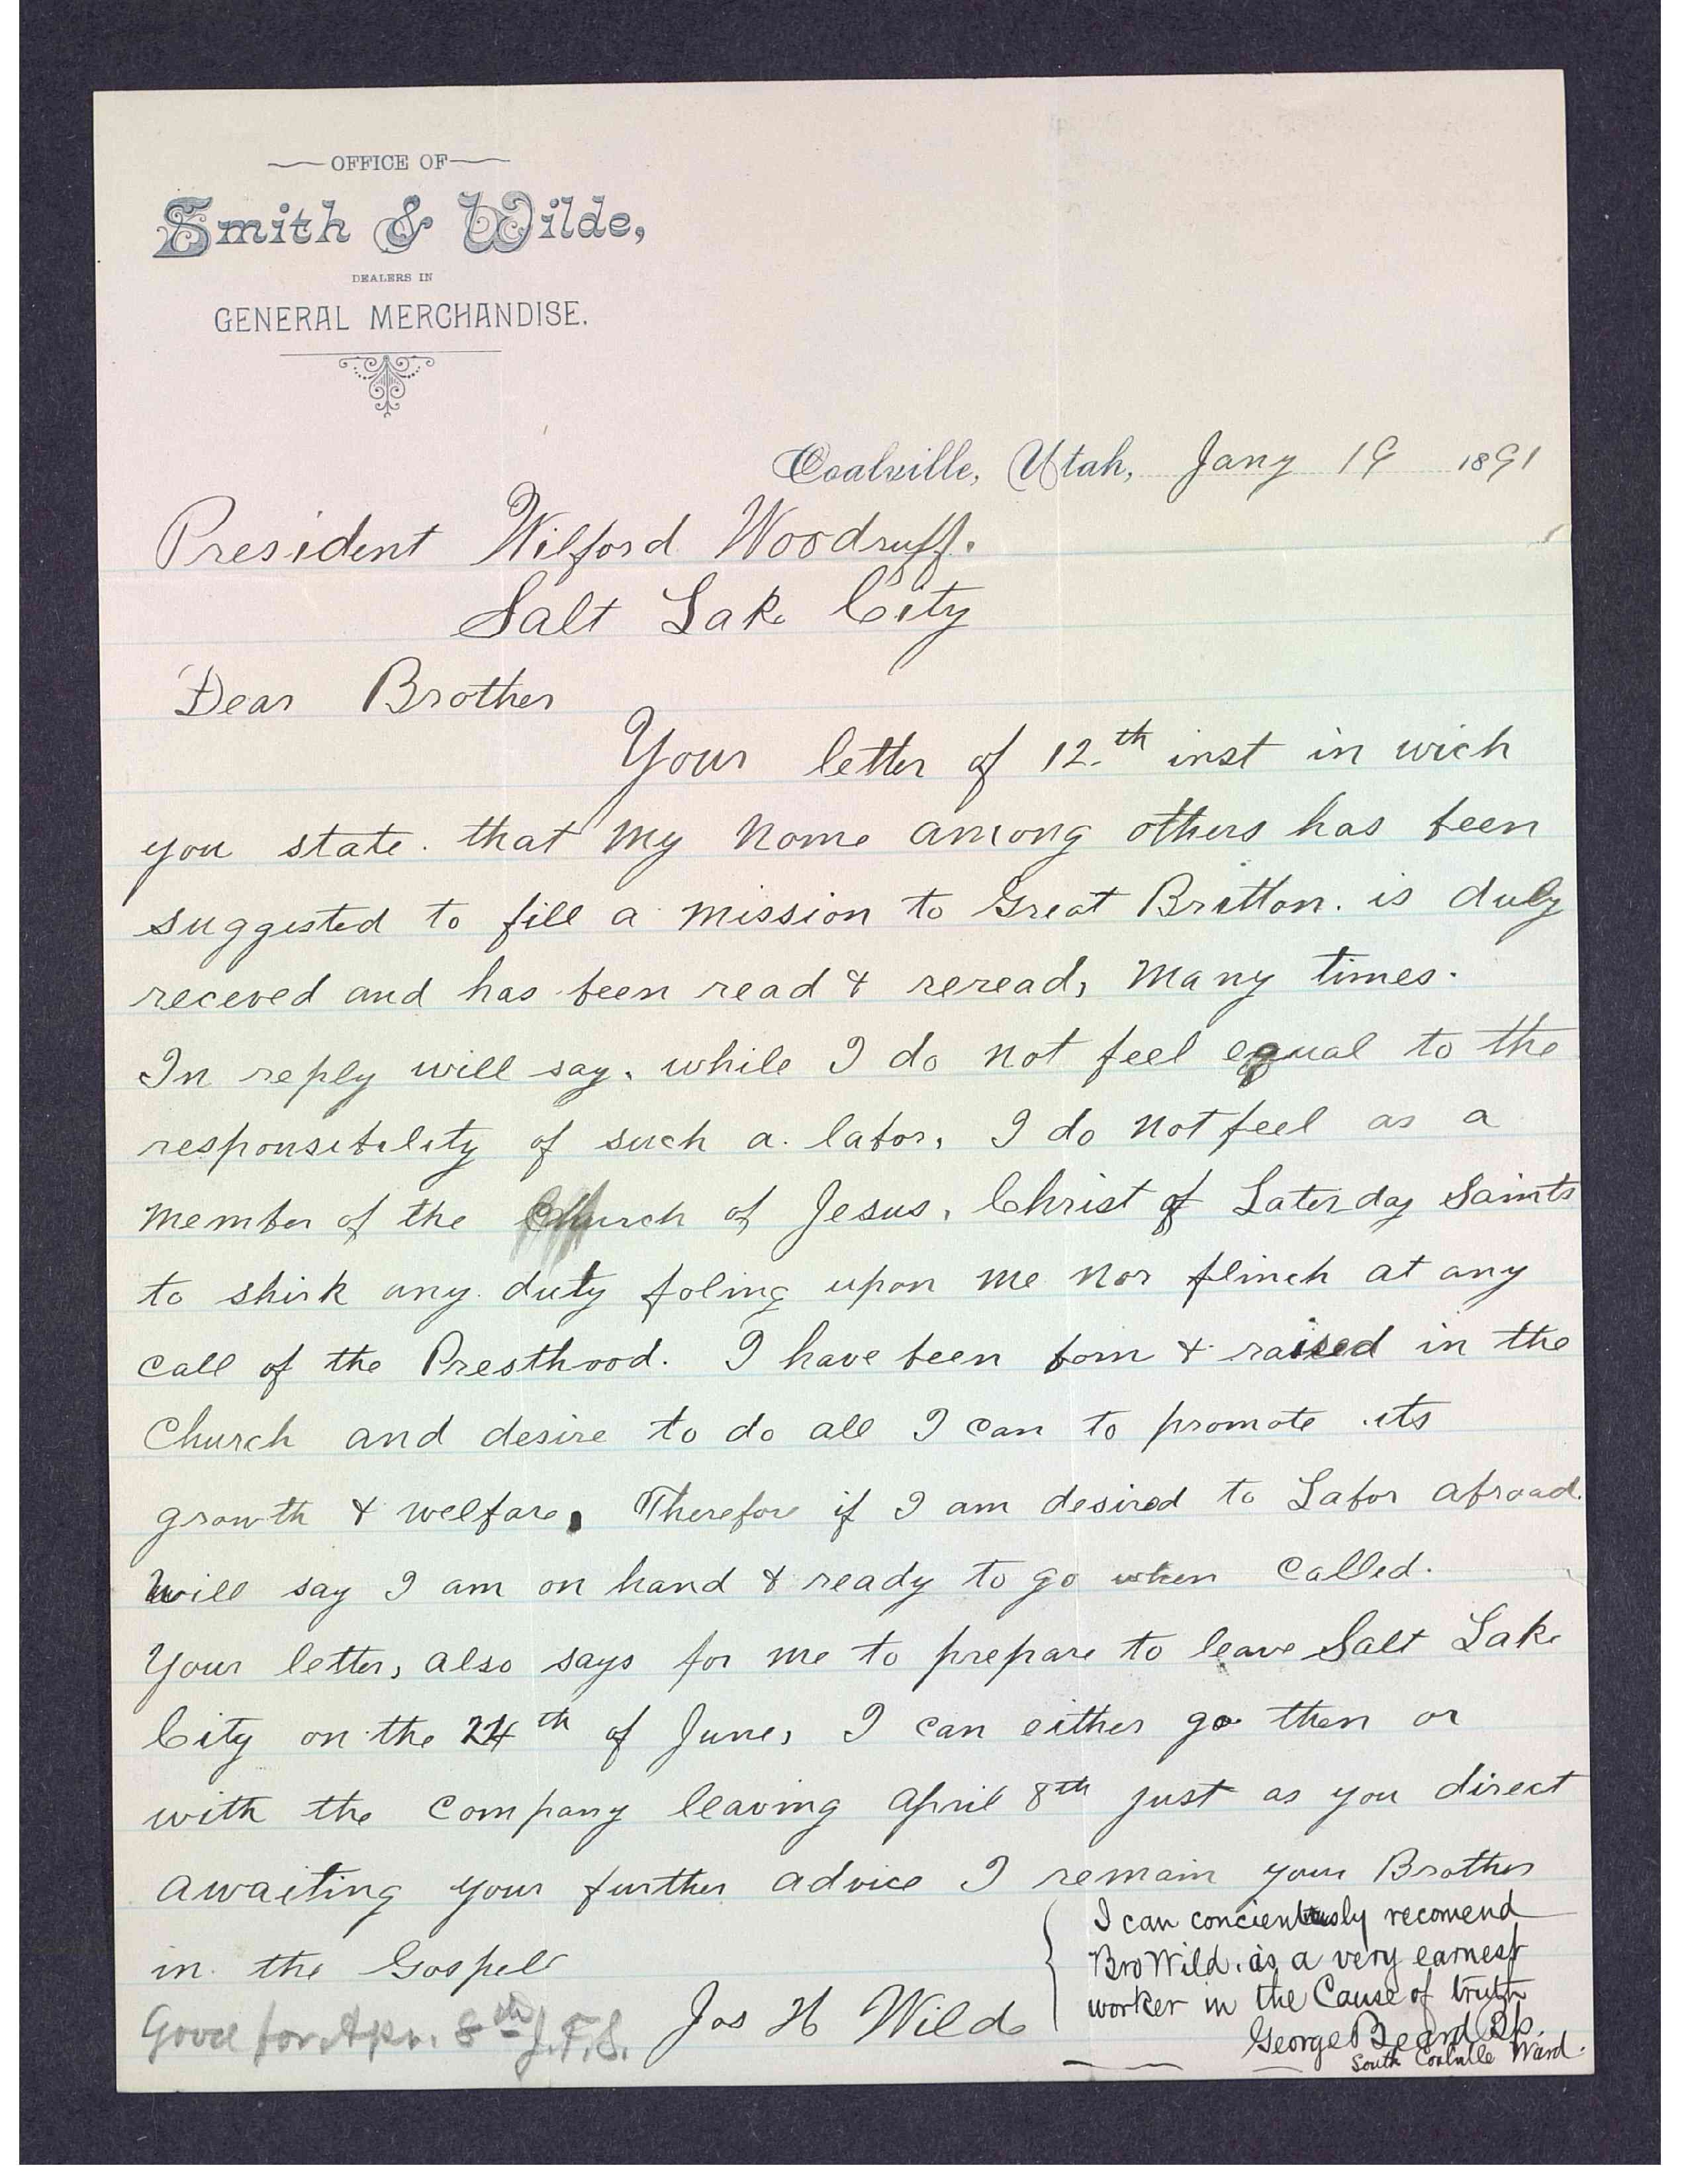 OFFICE OF
Smith & Wilde,
DEALERS IN
GENERAL MERCHANDISE.
Coalville, Utah, Jany 19 1891
President Wilford Woodruff.
Salt Lake City
Dear Brother
Your letter of 12.th inst in wich
you state. that my name among others has been
suggested to fill a mission to Great Britton. is duly
receved and has been read & reread, many times.
In reply will say. while I do not feel equal to the
responsibility of such a. labor, I do not feel as a
member of the Church of Jesus, Christ of Laterday Saints
to shirk any. duty foling upon me nor flinch at any
call of the Presthood. I have been born & raised in the
Church and desire to do all I can to promote its
growth & welfare, Therefor if I am desired to Labor abroad.
will say I am on hand & ready to go when called.
Your letter, also says for me to prepare to leave Salt Lake
City on the 24th of June, I can either go then or
with the company leaving April 8th just as you direct
awaiting your further advice I remain your Brother
in the Gospell
Jos H Wilde
I can concientously recomend
Bro Wild. as a very earnest
worker in the Cause of truth
George Beard Bp.
South Coalville Ward.
Good for Apr. 8th J.F.S.